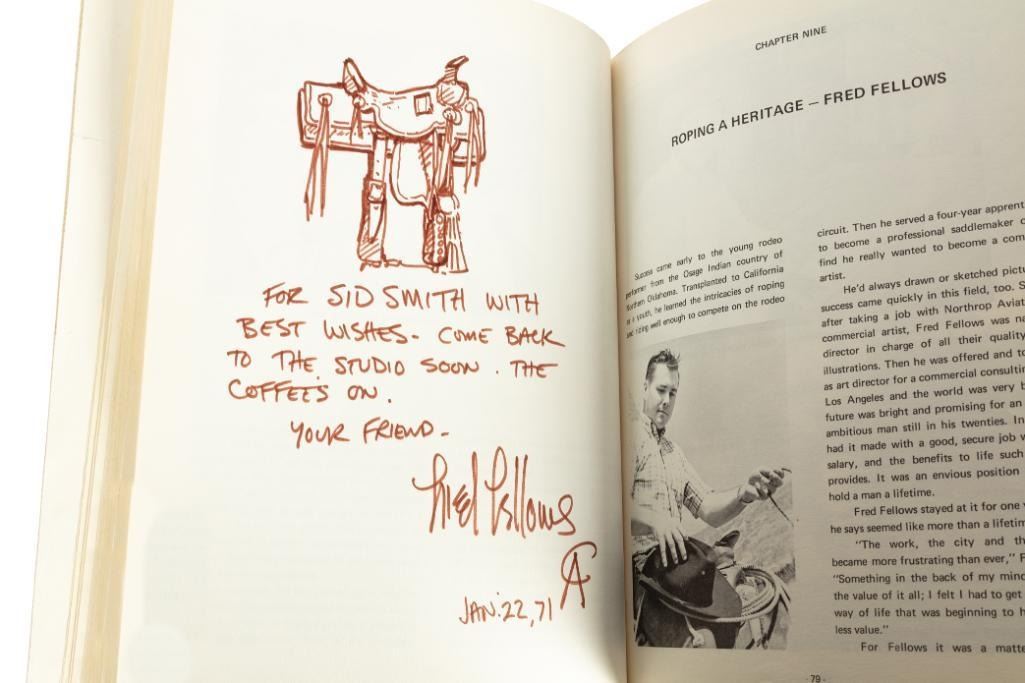 FOR SID SMITH WITH
BEST WISHES. COME BACK
TO THE STUDIO SOON. THE
COFFEE'S ON.
YOUR FRIEND -
Fred Fellows
CA
JAN. 22, 71
CHAPTER NINE
ROPING A HERITAGE — FRED FELLOWS
Success came early to the young rodeo
performer from the Osage Indian country of
Northern Oklahoma. Transplanted to California
as a youth, he learned the intricacies of roping
and riding well enough to compete on the rodeo
circuit. Then he served a four-year apprent
to become a professional saddlemaker
find he really wanted to become a com
artist.
He'd always drawn or sketched pict
success came quickly in this field, too. S
after taking a job with Northrop Aviat
commercial artist, Fred Fellows was na
director in charge of all their quality
illustrations. Then he was offered and to
as art director for a commercial consultin
Los Angeles and the world was very b
future was bright and promising for an
ambitious man still in his twenties. In
had it made with a good, secure job w
salary, and the benefits to life such
provides. It was an envious position
hold a man a lifetime.
Fred Fellows stayed at it for one
he says seemed like more than a lifetim
"The work, the city and th
became more frustrating than ever," F
"Something in the back of my mind
the value of it all; I felt I had to get
way of life that was beginning to h
less value."
For Fellows it was a matte
- 79 -